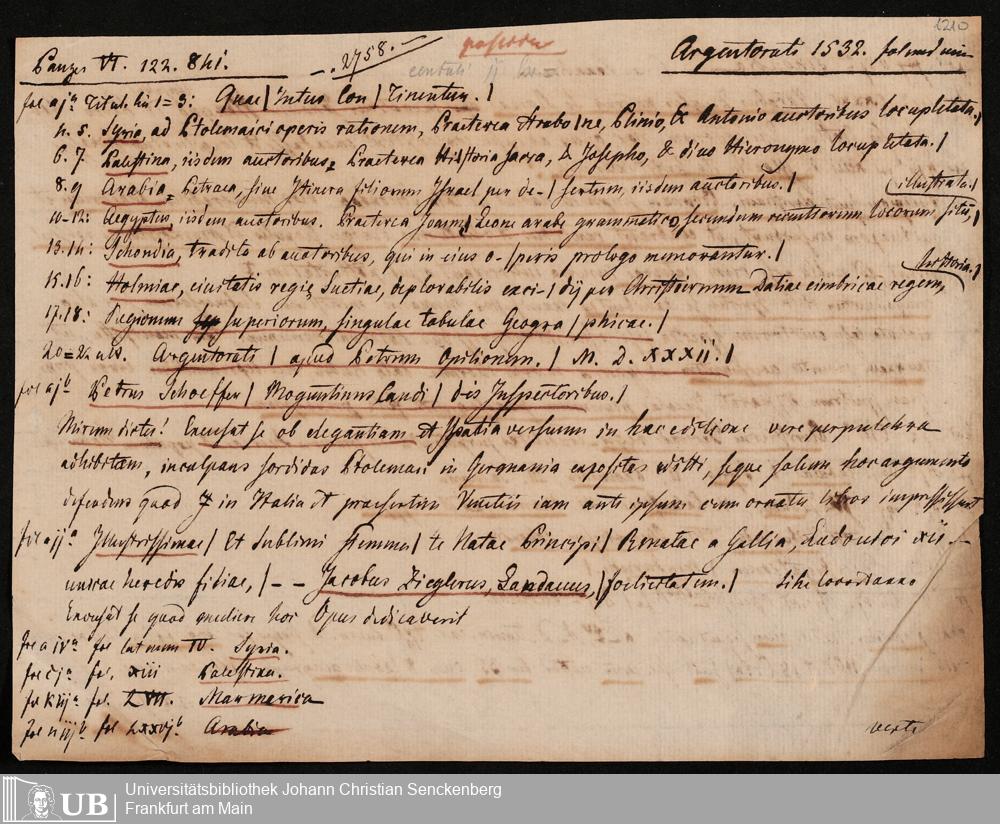 1210
Panzer VI. 122. 841. 2758. Argentorati 1532. fol
fol aja Tituli lin 1=3: Quae | Intus Con | Tinentur. |
4. 5. Syria, ad Ptolemaici operis rationem, Praeterea Strabo | ne, Plinio, & Antonio auctoribus locupletata. |
6. 7. Palestina, iisdem auctoribus, Praeterea Historia sacra, & Josepho, & diuo Hieronymo locupletata. |
8. 9 Arabia Petraea, siue Itinera filiorum Israel per de- | sertum, iisdem auctoribus. |
(illustrata. |
10-12: Aegyptus, iisdem auctoribus. Praeterea Joanne Leone arabe grammatico, secundum recentiorum locorum situm,
13. 14: Schondia, tradita ab auctoribus, qui in eius o- | peris prologo memorantur. |
(historia. |
15. 16: Holmiae, ciuitatis regię Suetiae, deplorabilis exci- | dij per Christiernum Datiae cimbricae regem,
17. 18: Regionum superiorum, singulae tabulae Geogra | phicae. |
20=22 ult. Argentorati | apud Petrum Opilionem. | M. D. xxxii. |
fol ajb Petrus Schoeffer | Moguntinus Candi | dis Inspectoribus. |
Mirum dictu! Excusat se ob elegantiam et spatia versuum in hac editione vere perpulchra
adhibitam, inculpans sordidas Ptolemaei in Germania expositas, seque solum hoc argumento
defendens quod in Italia et praesertim Venetiis iam ante ipsum cum ornatu libros impressissent
fol a ija Illustrissimae | Et Sublimi stemma | te Natae Principi | Renatae a Gallia, Ludouici xii
heredis filiae, | -- Jacobus Zieglerus, Landauus, | foelicitatem. | sine
Excusat se quod mulieri hoc Opus dedicaverit
fol a iva fol IV. Syria.
fol. xiii Palestina.
fol. LVII. Marmarica
fol LXXVjb. Arabia
verte
Universitätsbibliothek Johann Christian Senckenberg
UB
Frankfurt am Main